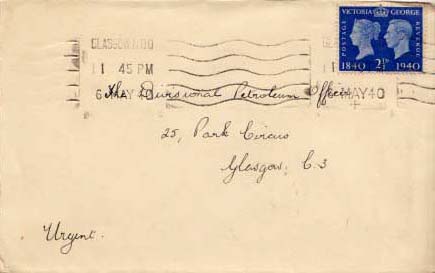 VICTORIA GEORGE
POSTAGE
REVENUE
1840 2½D 1940
GLASGOW
11 45 PM
6 MAY 40
MAY 40
The Divisional Petroleum Officer
25, Park Circus
Glasgow, C.3
Urgent.